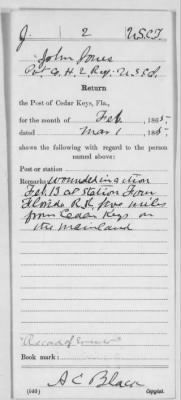 J. 2 U.S.C.T.
John Jones
Pvt G. H. 2 Reg. U.S.C.I.
Return
the Post of Cedar Keys, Fla.,
for the month of Feb , 1865
dated Mar 1 , 1865.
shows the following with regard to the person
named above:
Post or station
Remarks wounded in action
Feb. 13 at Station Four
Florida R.R. five miles
from Cedar Keys on
the mainland
Record of
Book mark:
(540) A C Black Copyist.